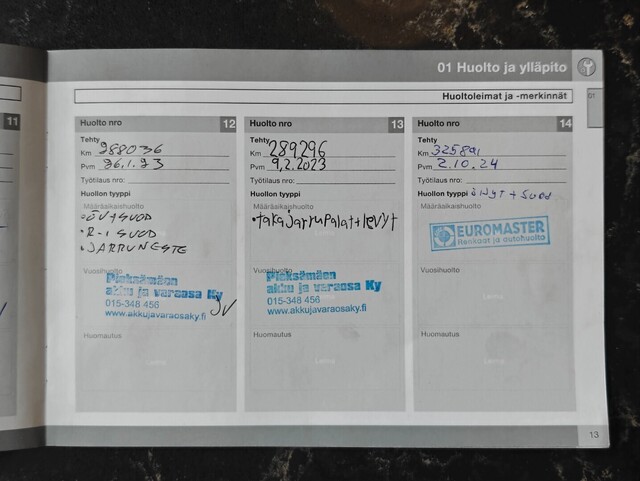 01 Huolto ja ylläpito
Huoltoleimat ja -merkinnät
01
11
Huolto nro 12
Tehty
Km 288036
Pvm 26.1.23
Työtilaus nro:
Huollon tyyppi
Määräaikaishuolto
• ÖV+SUOD
• R-I SUOD
• JARRUNESTE
Vuosihuolto
Pieksämäen
akku ja varaosa Ky
015-348 456
www.akkujavaraosaky.fi
JV
Huomautus
Leima
Huolto nro 13
Tehty
Km 289296
Pvm 9.2.2023
Työtilaus nro:
Huollon tyyppi
Määräaikaishuolto
• takajarrupalat+levyt
Vuosihuolto
Pieksämäen
akku ja varaosa Ky
015-348 456
www.akkujavaraosaky.fi
Huomautus
Leima
Huolto nro 14
Tehty
Km
Pvm 2.10.24
Työtilaus nro:
Huollon tyyppi + suod
Määräaikaishuolto
EUROMASTER
Renkaat ja autohuolto
Vuosihuolto
Leima
Huomautus
Leima
13